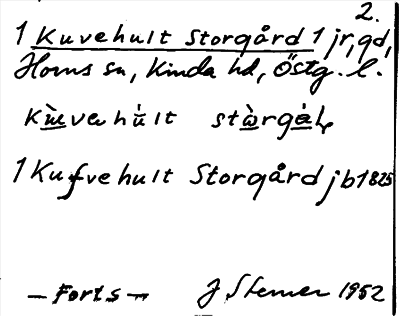 2.
1 Kuvehult Storgård 1 jr, gd,
Horns sn, Kinda hd, Östg. l.
kùvehùlt stòrgàɽ
1 Kufvehult Storgård jb 1825
– Forts – J Sterner 1952